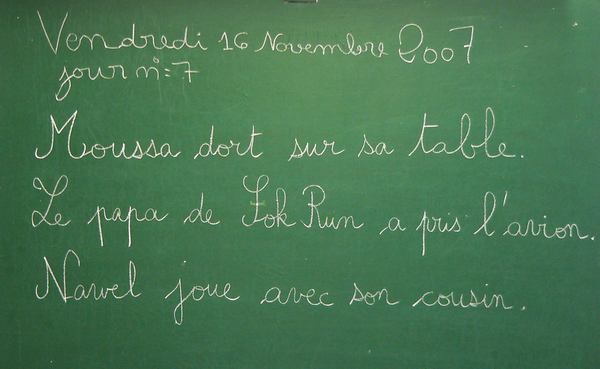 Vendredi 16 Novembre 2007
jour n°=7
Moussa dort sur sa table.
Le papa de Sok Run a pris l'avion.
Nawel joue avec son cousin.